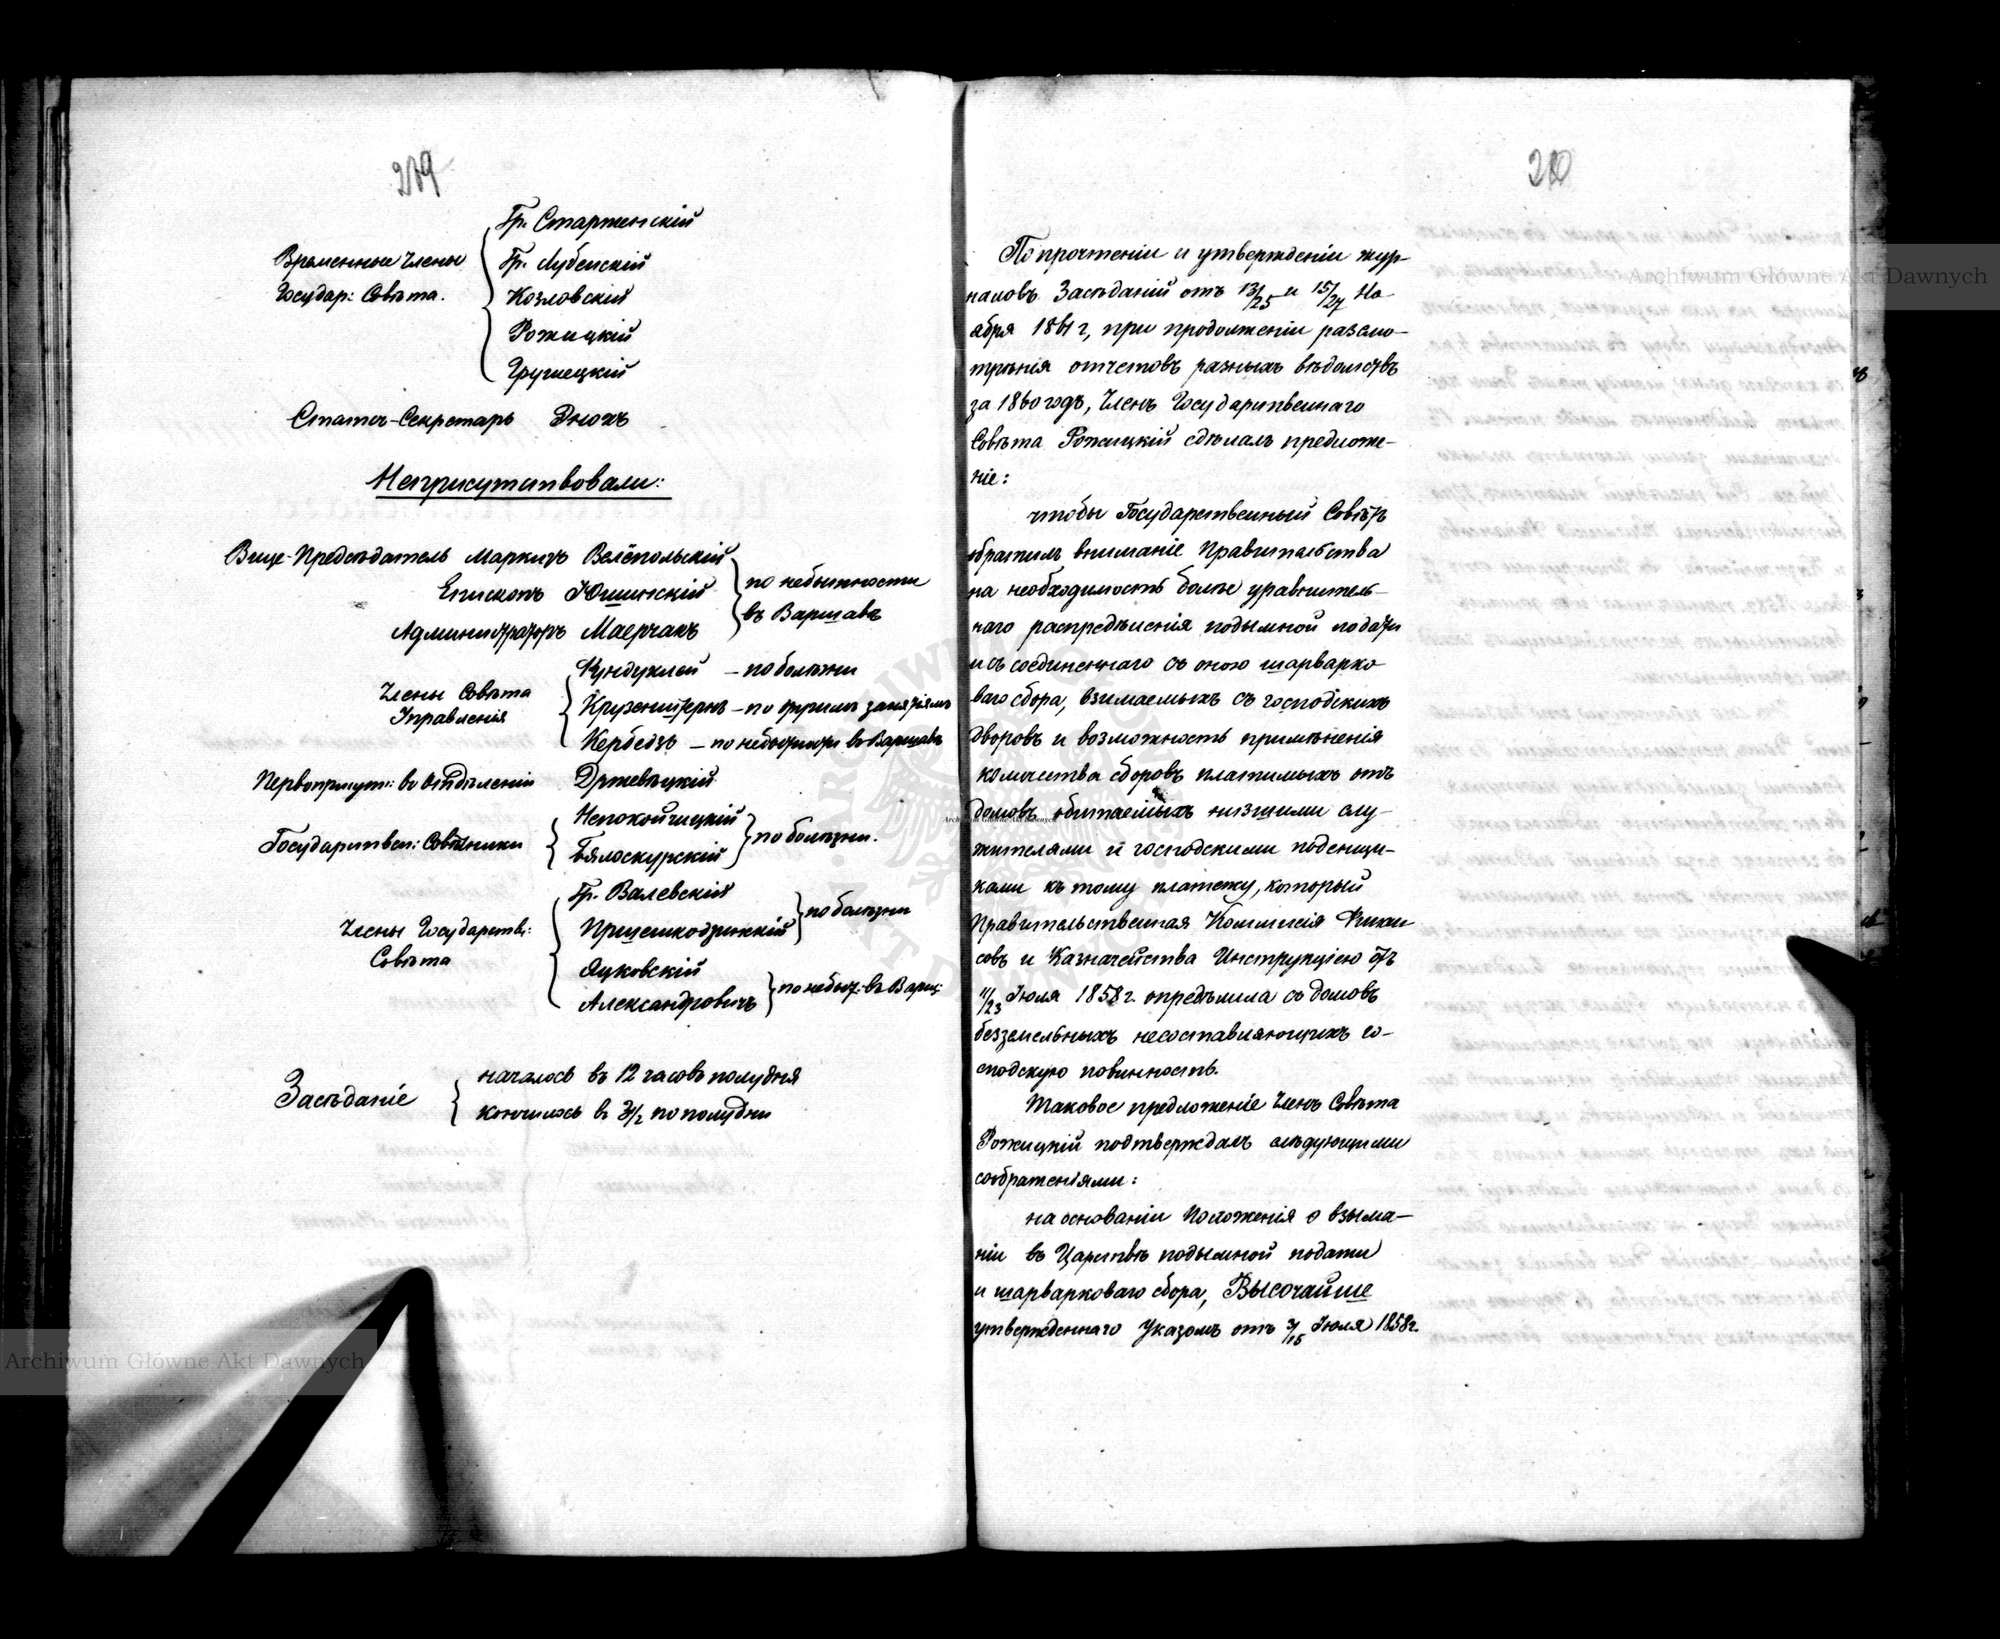 219
Временные Члены
Государ: Совѣта.
Гр. Старженскій
Гр. Лубенскій
Козловскій
Рожицкій
Грушецкій
Статсъ-Секретарь Энохъ
Неприсутствовали:
Вице-Предсѣдатель Маркизъ Велёпольскій
Епископъ Юшинскій
Администраторъ Маерчакъ
по небытности
въ Варшавѣ
Члены Совѣта
Управленія
Кундуклей — по болѣзни
Крузенштернъ — по другимъ занятіямъ
Кербедзъ — по небытности въ Варшавѣ
Первоприсут: во Отдѣленіи Држевецкій
Государствен: Совѣтники
Непокойчицкій
Бялоскурскій
по болѣзни.
Члены Государств:
Совѣта
Гр. Валевскій
Пршешкодзинскій
по болѣзни
Яцковскій
Александровичъ
по небыт: въ Варш:
Засѣданіе
началось въ 12 часовъ полудня
кончилось въ 3½ по полудни
210
По прочтеніи и утвержденіи жур-
наловъ Засѣданій отъ 13/25 и 15/27 Но-
ября 1861 г, при продолженіи разсмо-
трѣнія отчетовъ разныхъ вѣдомствъ
за 1860 годъ, Членъ Государственнаго
Совѣта Рожицкій сдѣлалъ предложе-
ніе:
чтобы Государственный Совѣтъ
обратилъ вниманіе Правительства
на необходимость болѣе уравнитель-
наго распредѣленія подымной подати
и съ соединеннаго съ оною шарварко-
ваго сбора, взимаемыхъ съ господскихъ
дворовъ и возможность примѣненія
количества сборовъ платимыхъ отъ
домовъ обитаемыхъ низшими слу-
жителями и господскими поденщи-
ками къ тому платежу, который
Правительственная Коммисія Финан
совъ и Казначейства Инструкціею отъ
11/23 Іюля 1858 г. опредѣлила съ домовъ
безземельныхъ несоставляющихъ го-
сподскую повинность.
Таковое предложеніе Членъ Совѣта
Рожицкій подтверждалъ слѣдующими
соображеніями:
на основаніи Положенія о взыма-
ніи въ Царствѣ подымной подати
и шарварковаго сбора, Высочайше
утвержденнаго Указомъ отъ 3/15 Іюля 1858 г.
Archiwum Główne Akt Dawnych
Archiwum Główne Akt Dawnych
Archiwum Główne Akt Dawnych